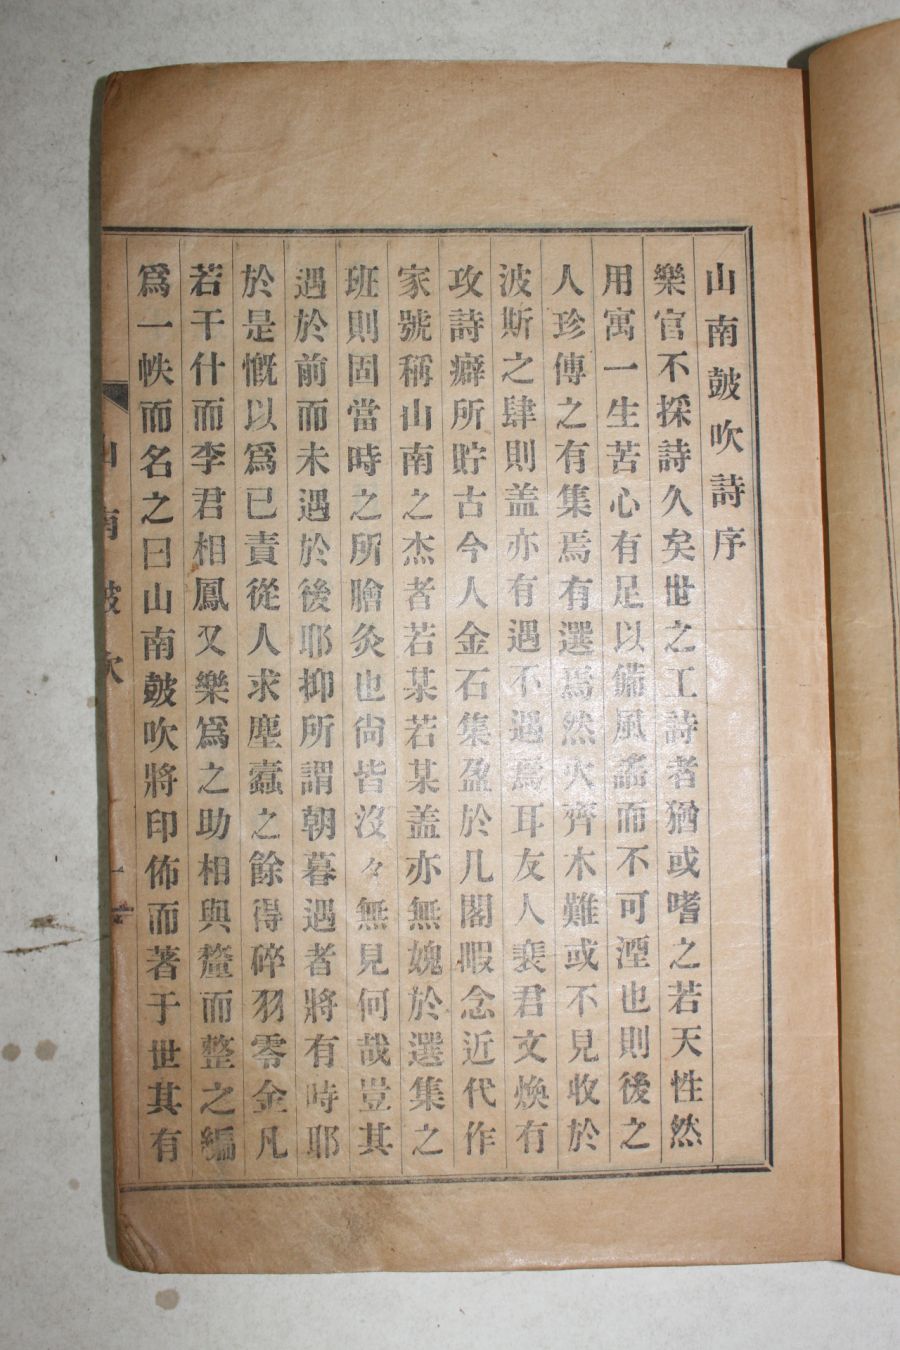 山南皷吹詩序
樂官不採詩久矣世之工詩者猶或嗜之若天性然
用寓一生苦心有足以備風謠而不可湮也則後之
人珍傳之有集焉有選焉然火齊木難或不見收於
波斯之肆則盖亦有遇不遇焉耳友人裴君文煥有
攻詩癖所貯古今人金石集盈於几閣暇念近代作
家號稱山南之杰者若某若某盖亦無媿於選集之
班則固當時之所膾灸也尙皆沒々無見何哉豈其
遇於前而未遇於後耶抑所謂朝暮遇者將有時耶
於是慨以爲已責從人求塵蠹之餘得碎羽零金凡
若干什而李君相鳳又樂爲之助相與釐而整之編
爲一帙而名之曰山南皷吹將印佈而著于世其有
山南皷吹
一